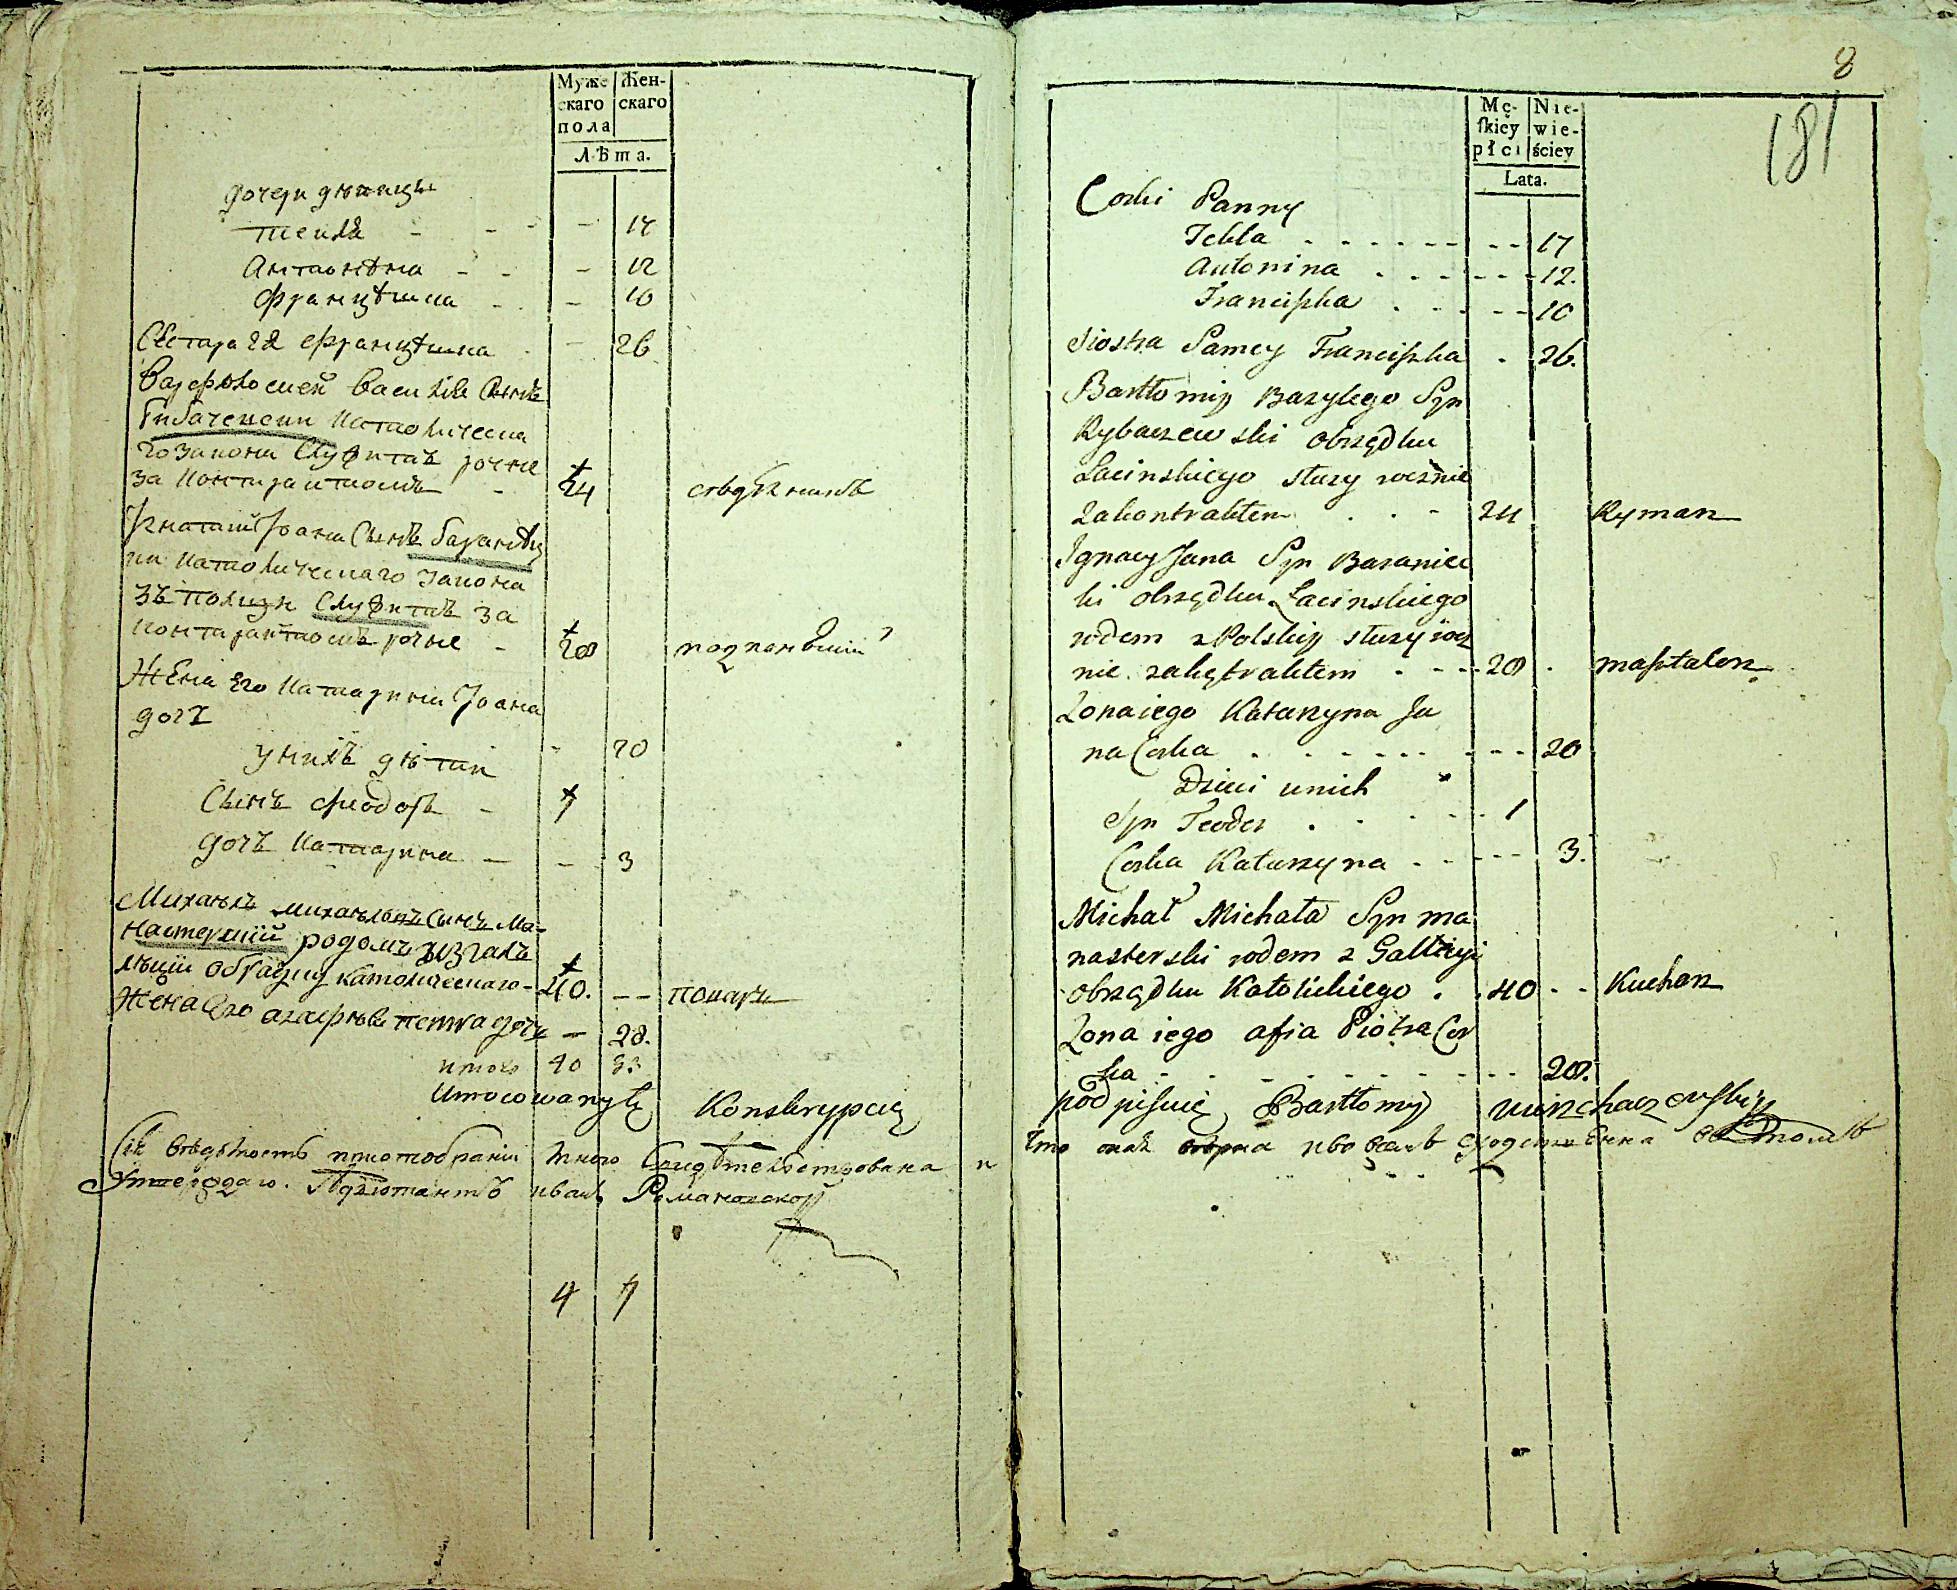 Муже Жен-
скаго скаго
пола
Лѣта.
дочери дѣвицы
текля - - - - 17
Антонѣна - - - 12
францѣшка - - 10
Сестра Ея францѣшка - 26
Варфоломей василя Сынъ
Рибачевски Католическа
го закона Служитъ рочне
за контрактомъ - 24
Игнатий Јоана Сынъ баранѣц
ки католическаго закона
зъ полщи Служитъ за
контрактомъ рочне - 28
Жена Его Катарина Јоана
дочъ
- 20
у нихъ дѣтти
Сынъ феодоръ - 1
дочъ Катарина - - 3
Михаѣлъ михаѣловъ Сынъ Ма-
настерский родомъ изгалъ
лѣции обрядку католическаго - 40. - - поваръ
Жена Его агафѣя петра дочъ - 28.
итого 40 33
Konskrypcię
Сiя вѣдомость приотобрании
Адъютантъ иванъ Романовской
4 7
8
181
Mę- Nie-
skiey wie-
płci ściey
Lata.
Corki Panny
Tekla . - - - - - - 17
Antonina . - - - - - 12.
Franciszka . - - - - 10
Siostra Samey Franciszka . 26.
Bartłomiy Bazylego Syn
Rybaczewski obrządku
Łacinskiego służy rocznie
zakontraktem . . - 24 Ryman
Ignacy Jana Syn Baraniec
ki obrządku Łacinskiego
rodem z Polskiy służy rocz
nie zakątraktem . - - - 28 . masztalerz
Zona iego Katarzyna Ja
na Corka . - - - - - - - 20
Dzieci unich
Syn Teodor . - - - - 1
Corka Katarzyna - - - - - 3.
Michał Michała Syn ma
nasterski rodem z Gallicyi
obrządku Katolickiego . . 40 - - Kucharz
Zona iego afia Piotra Cor
ka - - - - - - - - - 28.
podpisuię Bartłomiy